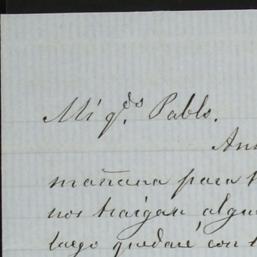 Mi q.do Pablo.
mañana para
nos traigan, algu
luego quedaré con